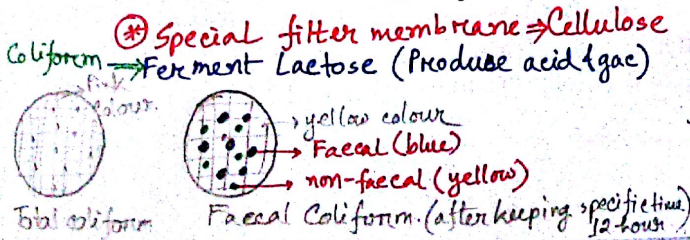 * Special filter membrane ⇒ Cellulose
Coliform → Ferment Lactose (Produse acid & gac)
Pink colour.
→ yellow colour
→ Faecal (blue)
→ non-faecal (yellow)
Total coliform
Faecal Coliform. (after keeping specific time)
12-hour